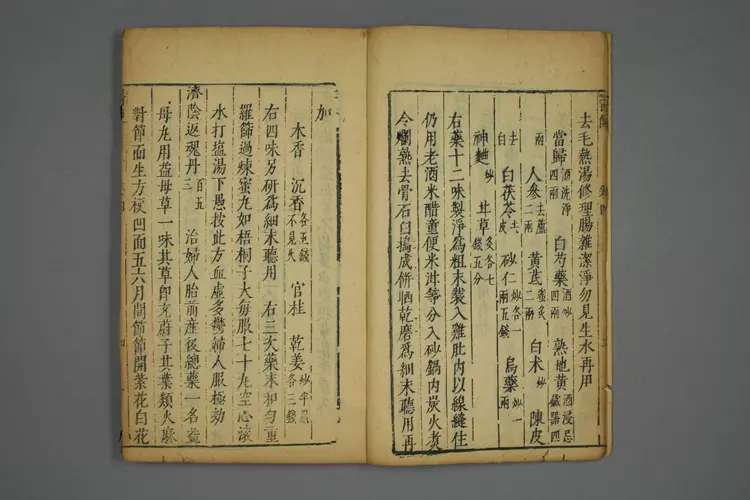 去毛熱湯修理腸雜潔淨勿見生水再用
當歸酒洗淨四兩 白芍藥酒炒四兩 熟地黃酒浸忌鐵器四
兩 人參去蘆二兩 黃芪蜜炙二兩 白朮炒 陳皮
去白 白茯苓去皮 砂仁炒各一兩五錢 烏藥炒一兩
神麯炒 甘草炙各七錢五分
右藥十二味製淨為粗末裝入雞肚內以線縫住
仍用老酒米醋童便米泔等分入砂鍋內炭火煮
令爛熟去骨石臼搗成餅晒乾磨為細末聽用再
加
木香 沉香各五錢不見火 官桂 乾姜炒半黑各三錢
右四味另研為細末聽用 右三次藥末和勻重
羅篩過煉蜜丸如梧桐子大每服七十丸空心滾
水打塩湯下愚按此方血虛多鬱婦人服極効
濟陰返魂丹百五五 治婦人胎前產後總藥一名益
母丸用益母草一味其草即充蔚子其葉類火麻
對節而生方梗凹面五六月間節節開紫花白花